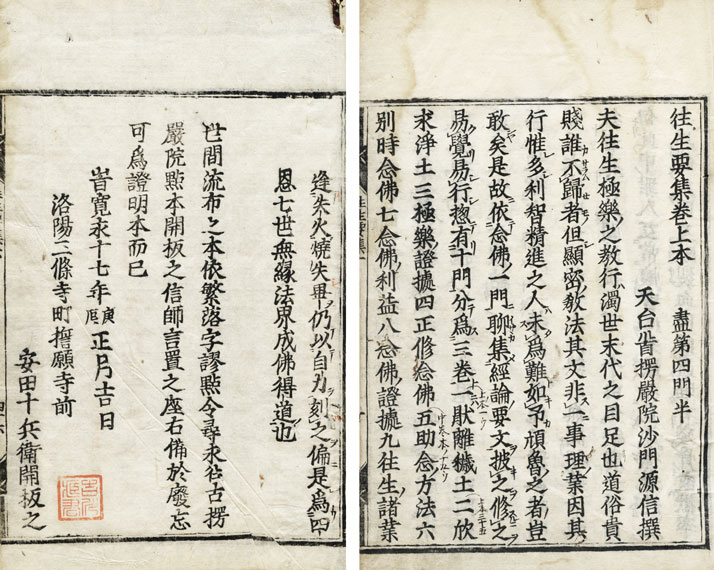 往生要集卷上本　盡第四門半
天台首楞嚴院沙門源信撰
夫往生極樂之教行濁世末代之目足也道俗貴
賤誰不歸者但顯密教法其文非一事理業因其
行惟多利智精進之人未爲難如予頑魯之者豈
敢矣是故依念佛一門聊集經論要文披之修之
易覺易行揔有十門分爲三卷一猒離穢土二欣
求淨土三極樂證據四正修念佛五助念方法六
別時念佛七念佛利益八念佛證據九往生諸業
逢朱火燒失畢仍以自力刻之偏是爲四
恩七世無緣法界成佛得道也
世間流布之本依繁落字謬點今尋求往古楞
嚴院點本開板之信師言置之座右備於廢忘
可爲證明本而已
旹寬永十七年庚辰正月吉日
洛陽三條寺町誓願寺前
安田十兵衛開板之